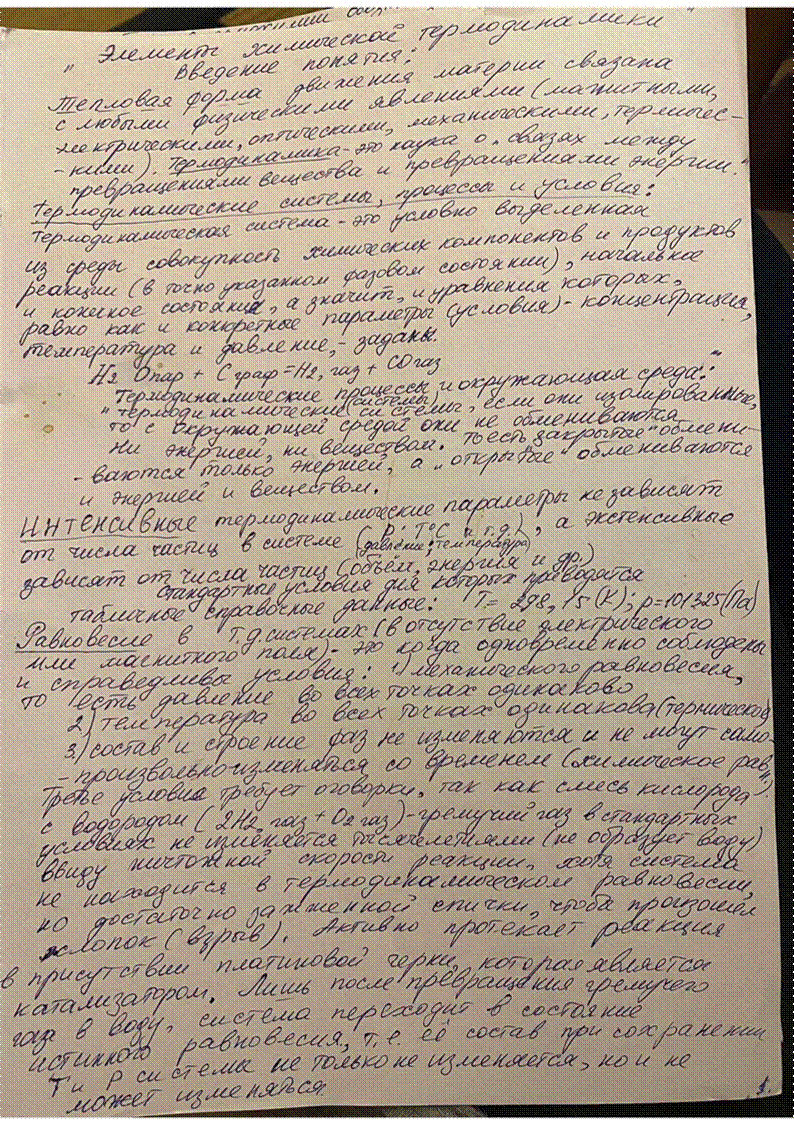 "Элементы химической термодинамики"
Введение понятия:
Тепловая форма движения материи связана
с любыми физическими явлениями (магнитными,
электрическими, оптическими, механическими, термичес-
-кими). Термодинамика - это наука о связях между
превращениями вещества и превращениями энергии."
Термодинамические системы, процессы и условия:
Термодинамическая система - это условно выделенная
из среды совокупность химических компонентов и продуктов
реакции (в точно указанном фазовом состоянии), начальное
и конечное состояния, а значит, и уравнения которых,
равно как и конкретные параметры (условия) - концентрации,
температура и давление, - заданы.
H2 Oпар + C граф = H2, газ + CO газ
Термодинамические процессы и окружающая среда:"
(системы)
"Термодинамические системы, если они изолированные,
то с окружающей средой они не обмениваются
ни энергией, ни веществом. То есть закрытые" обмени-
-ваются только энергией, а "открытые" обмениваются
и энергией и веществом.
Интенсивные термодинамические параметры не зависят
от числа частиц в системе (P; T°C и т.д.), а экстенсивные
(давление; температура)
зависят от числа частиц (объём, энергия и др.)
Стандартные условия для которых приводятся
табличные справочные данные: T = 298,15 (К); p=101325(Па)
Равновесие в т.д.системах (в отсутствие электрического
или магнитного поля) - это когда одновременно соблюдены
и справедливы условия: 1) механического равновесия,
то есть давление во всех точках одинаково
2) температура во всех точках одинакова (термической)
3.) состав и строение фаз не изменяются и не могут само-
-произвольно изменяться со временем (химическое равн.)
Третье условие требует оговорки, так как смесь кислорода
с водородом (2H2 газ + O2 газ) - гремучий газ в стандартных
условиях не изменяется тысячелетиями (не образует воду)
ввиду ничтожной скорости реакции, хотя система
не находится в термодинамическом равновесии,
но достаточно зажженной спички, чтобы произошёл
хлопок (взрыв). Активно протекает реакция
в присутствии платиновой черни, которая является
катализатором. Лишь после превращения гремучего
газа в воду, система переходит в состояние
истинного равновесия, т.е. её состав при сохранении
T и P система не только не изменяется, но и не
может изменяться.
1.